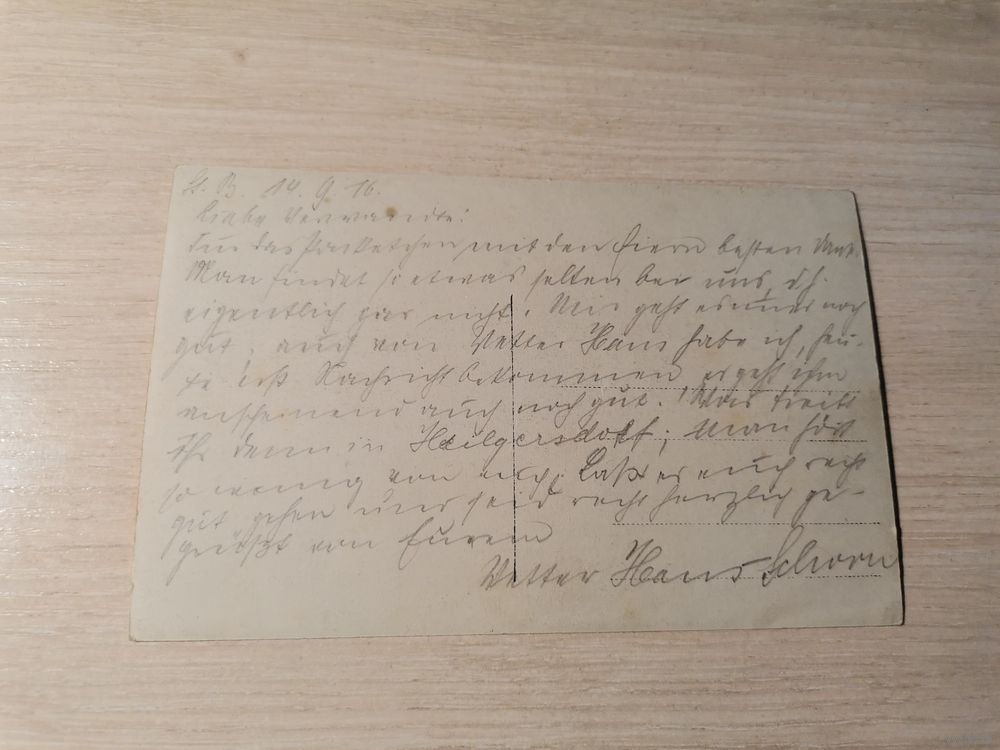 St. B. 14. 9. 16.
Liebe Verwandte!
Für das Packetchen mit den Eiern besten Dank.
Man findet so etwas selten bei uns, d. h.
eigentlich gar nicht. Mir geht es immer noch
gut, auch von Vetter Hans habe ich, heu-
te erst Nachricht bekommen, es geht ihm
anscheinend auch noch gut. Was treibt
Ihr denn in Heilgersdorf; man hört
so wenig von euch. Laßt es euch recht
gut gehen und seid recht herzlich ge-
grüßt von Eurem
Vetter Hans Schorn